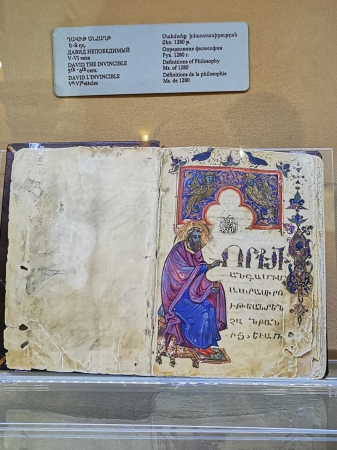 ԴԱՎԻԹ ԱՆՀԱՂԹ
Ե-Զ դդ.
ДАВИД НЕПОБЕДИМЫЙ
V-VI века
DAVID THE INVINCIBLE
5th-6th cent.
DAVID L'INVINCIBLE
Ve-VIe siècles
Սահմանք իմաստասիրության
Ձեռ. 1280 թ.
Определение философии
Рук. 1280 г.
Definitions of Philosophy
Ms. of 1280
Définitions de la philosophie
Ms. de 1280
ՈՐՔ Մ
ԱՆԳԱՄ ԻՄ